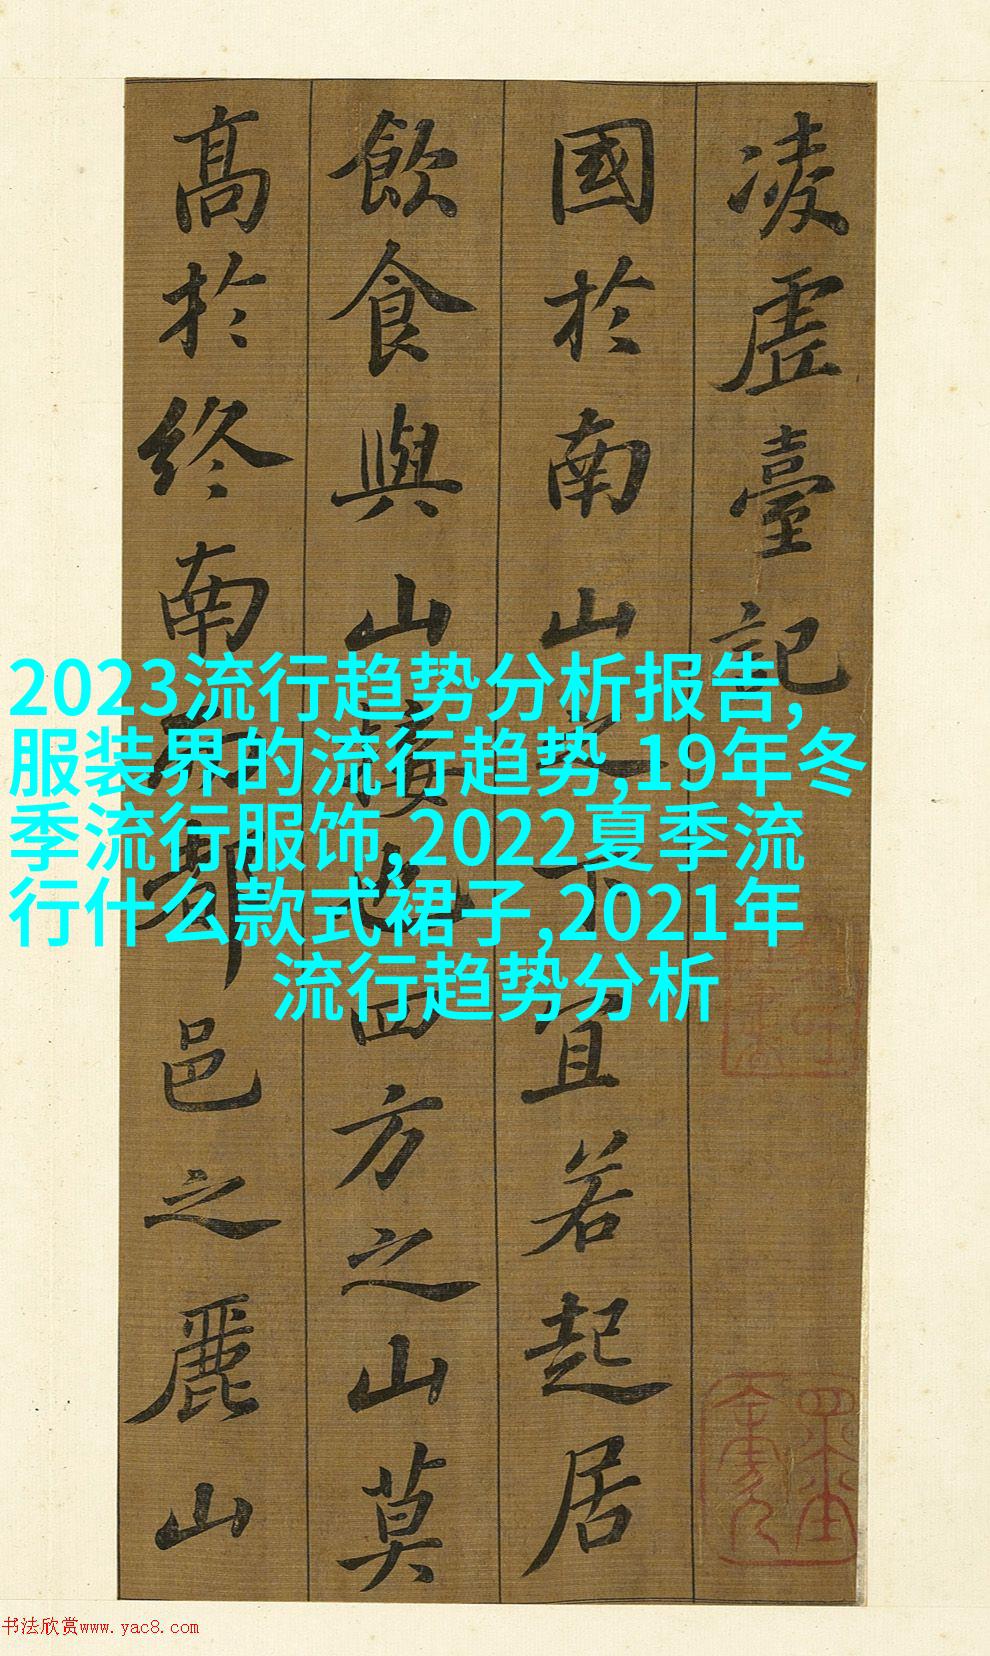 凌虛臺記
國於南山之下宜若起居
飲食與山接也四方之山莫
高於終南而都邑之麗山
2023流行趋势分析报告,
服装界的流行趋势,19年冬
季流行服饰,2022夏季流
行什么款式裙子,2021年
流行趋势分析
书法欣赏www.yac8.com